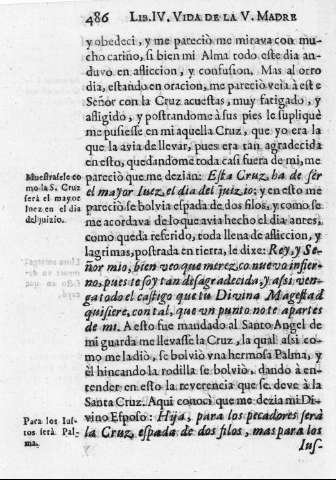 486 LIB.IV. VIDA DE LA V. MADRE
y obedeci, y me pareciò me mirava con mu-
cho cariño, si bien mi Alma todo este dia an-
duvo en afliccion, y confusion. Mas al otro
dia, estando en oracion, me pareciò veia à este
Señor con la Cruz acuestas, muy fatigado, y
afligido, y postrandome à sus pies le supliquè
me pusiesse en mi aquella Cruz, que yo era la
que la avia de llevar, pues era tan agradecida
en esto, quedandome toda casi fuera de mi, me
pareciò que me dezian: Esta Cruz ha de ser
el mayor Iuez, el dia del juizio; y en esto me
pareciò se bolvia espada de dos filos, y como se
me acordava de lo que avia hecho el dia antes,
como queda referido, toda llena de afliccion, y
lagrimas, postrada en tierra, le dixe: Rey, y Se-
ñor mio, bien veo que merezco nuevo infier-
no, pues te soy tan desagradecida, y assi ven-
ga todo el castigo que tu Divina Magestad
quisiere, con tal, que un punto no te apartes
de mi. A esto fue mandado al Santo Angel de
mi guarda me llevasse la Cruz, la qual assi co-
mo me la diò, se bolviò vna hermosa Palma, y
èl hincando la rodilla se bolviò, dando à en-
tender en esto la reverencia que se deve à la
Santa Cruz. Aqui conocì que me dezia mi Di-
vino Esposo: Hija, para los pecadores serà
la Cruz, espada de dos filos, mas para los
Ius-
Muestrasele co
mo la S. Cruz
serà el mayor
Iuez en el dia
del juizio.
Para los Ius-
tos serà Pal-
ma.